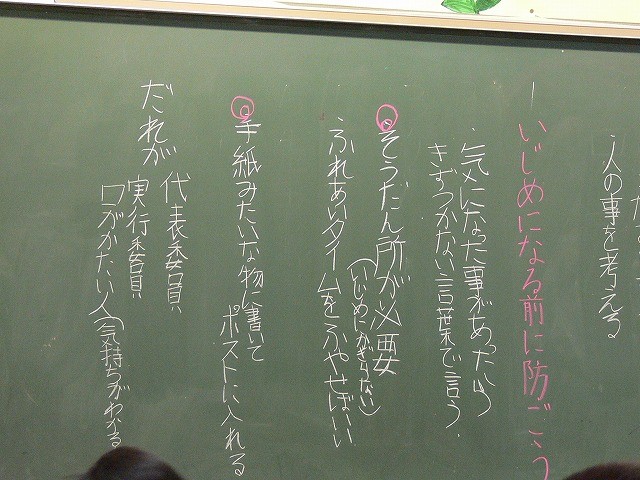 人の事を考える
いじめになる前に防ごう
・気になった事があったら
きずつかない言葉で言う.
◎そうだん所が必要
(いじめにかぎらない)
・ふれあいタイムをふやせばいい
◎手紙みたいな物に書いて
ポストに入れる
だれが
代表委員
実行委員
口がかたい人(気持ちがわかる